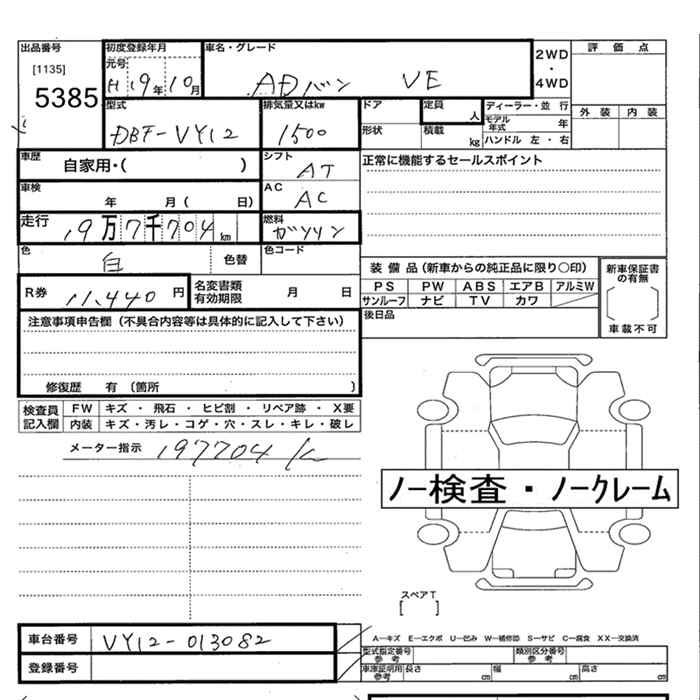 出品番号 初度登録年月 車名・グレード 2WD・4WD 評価点
[1135] 元号
5385 H 19年 10月 ADバン VE
外装 内装
型式 排気量又はkw ドア 定員 人 ディーラー・並 行
DBF-VY12 1500 形状 積載 kg モデル年式 年
ハンドル 左・右
車歴 自家用・( ) シフト AT 正常に機能するセールスポイント
車検 年 月( 日) AC AC
走行 19万7千704km 燃料 ガソリン
色 白 色替 色コード
装備品(新車からの純正品に限り〇印) 新車保証書の有無
R券 11,440円 名変書類有効期限 月 日 PS PW ABS エアB アルミW
サンルーフ ナビ TV カワ [ ]
注意事項申告欄(不具合内容等は具体的に記入して下さい) 後日品 車載不可
修復歴 有 〔箇所 〕
検査員記入欄 FW キズ ・ 飛石 ・ ヒビ割 ・ リペア跡 ・ X要
内装 キズ・汚レ・コゲ・穴・スレ・キレ・破レ
メーター指示 197704 K
ノー検査・ノークレーム
スペアT
[ ]
車台番号 VY12-013082 A―キズ E―エクボ U―凹み W―補修跡 S―サビ C―腐食 XX―交換済
型式指定番号参考 類別区分番号参考
登録番号 車庫証明用参考 長さ cm 幅 cm 高さ cm